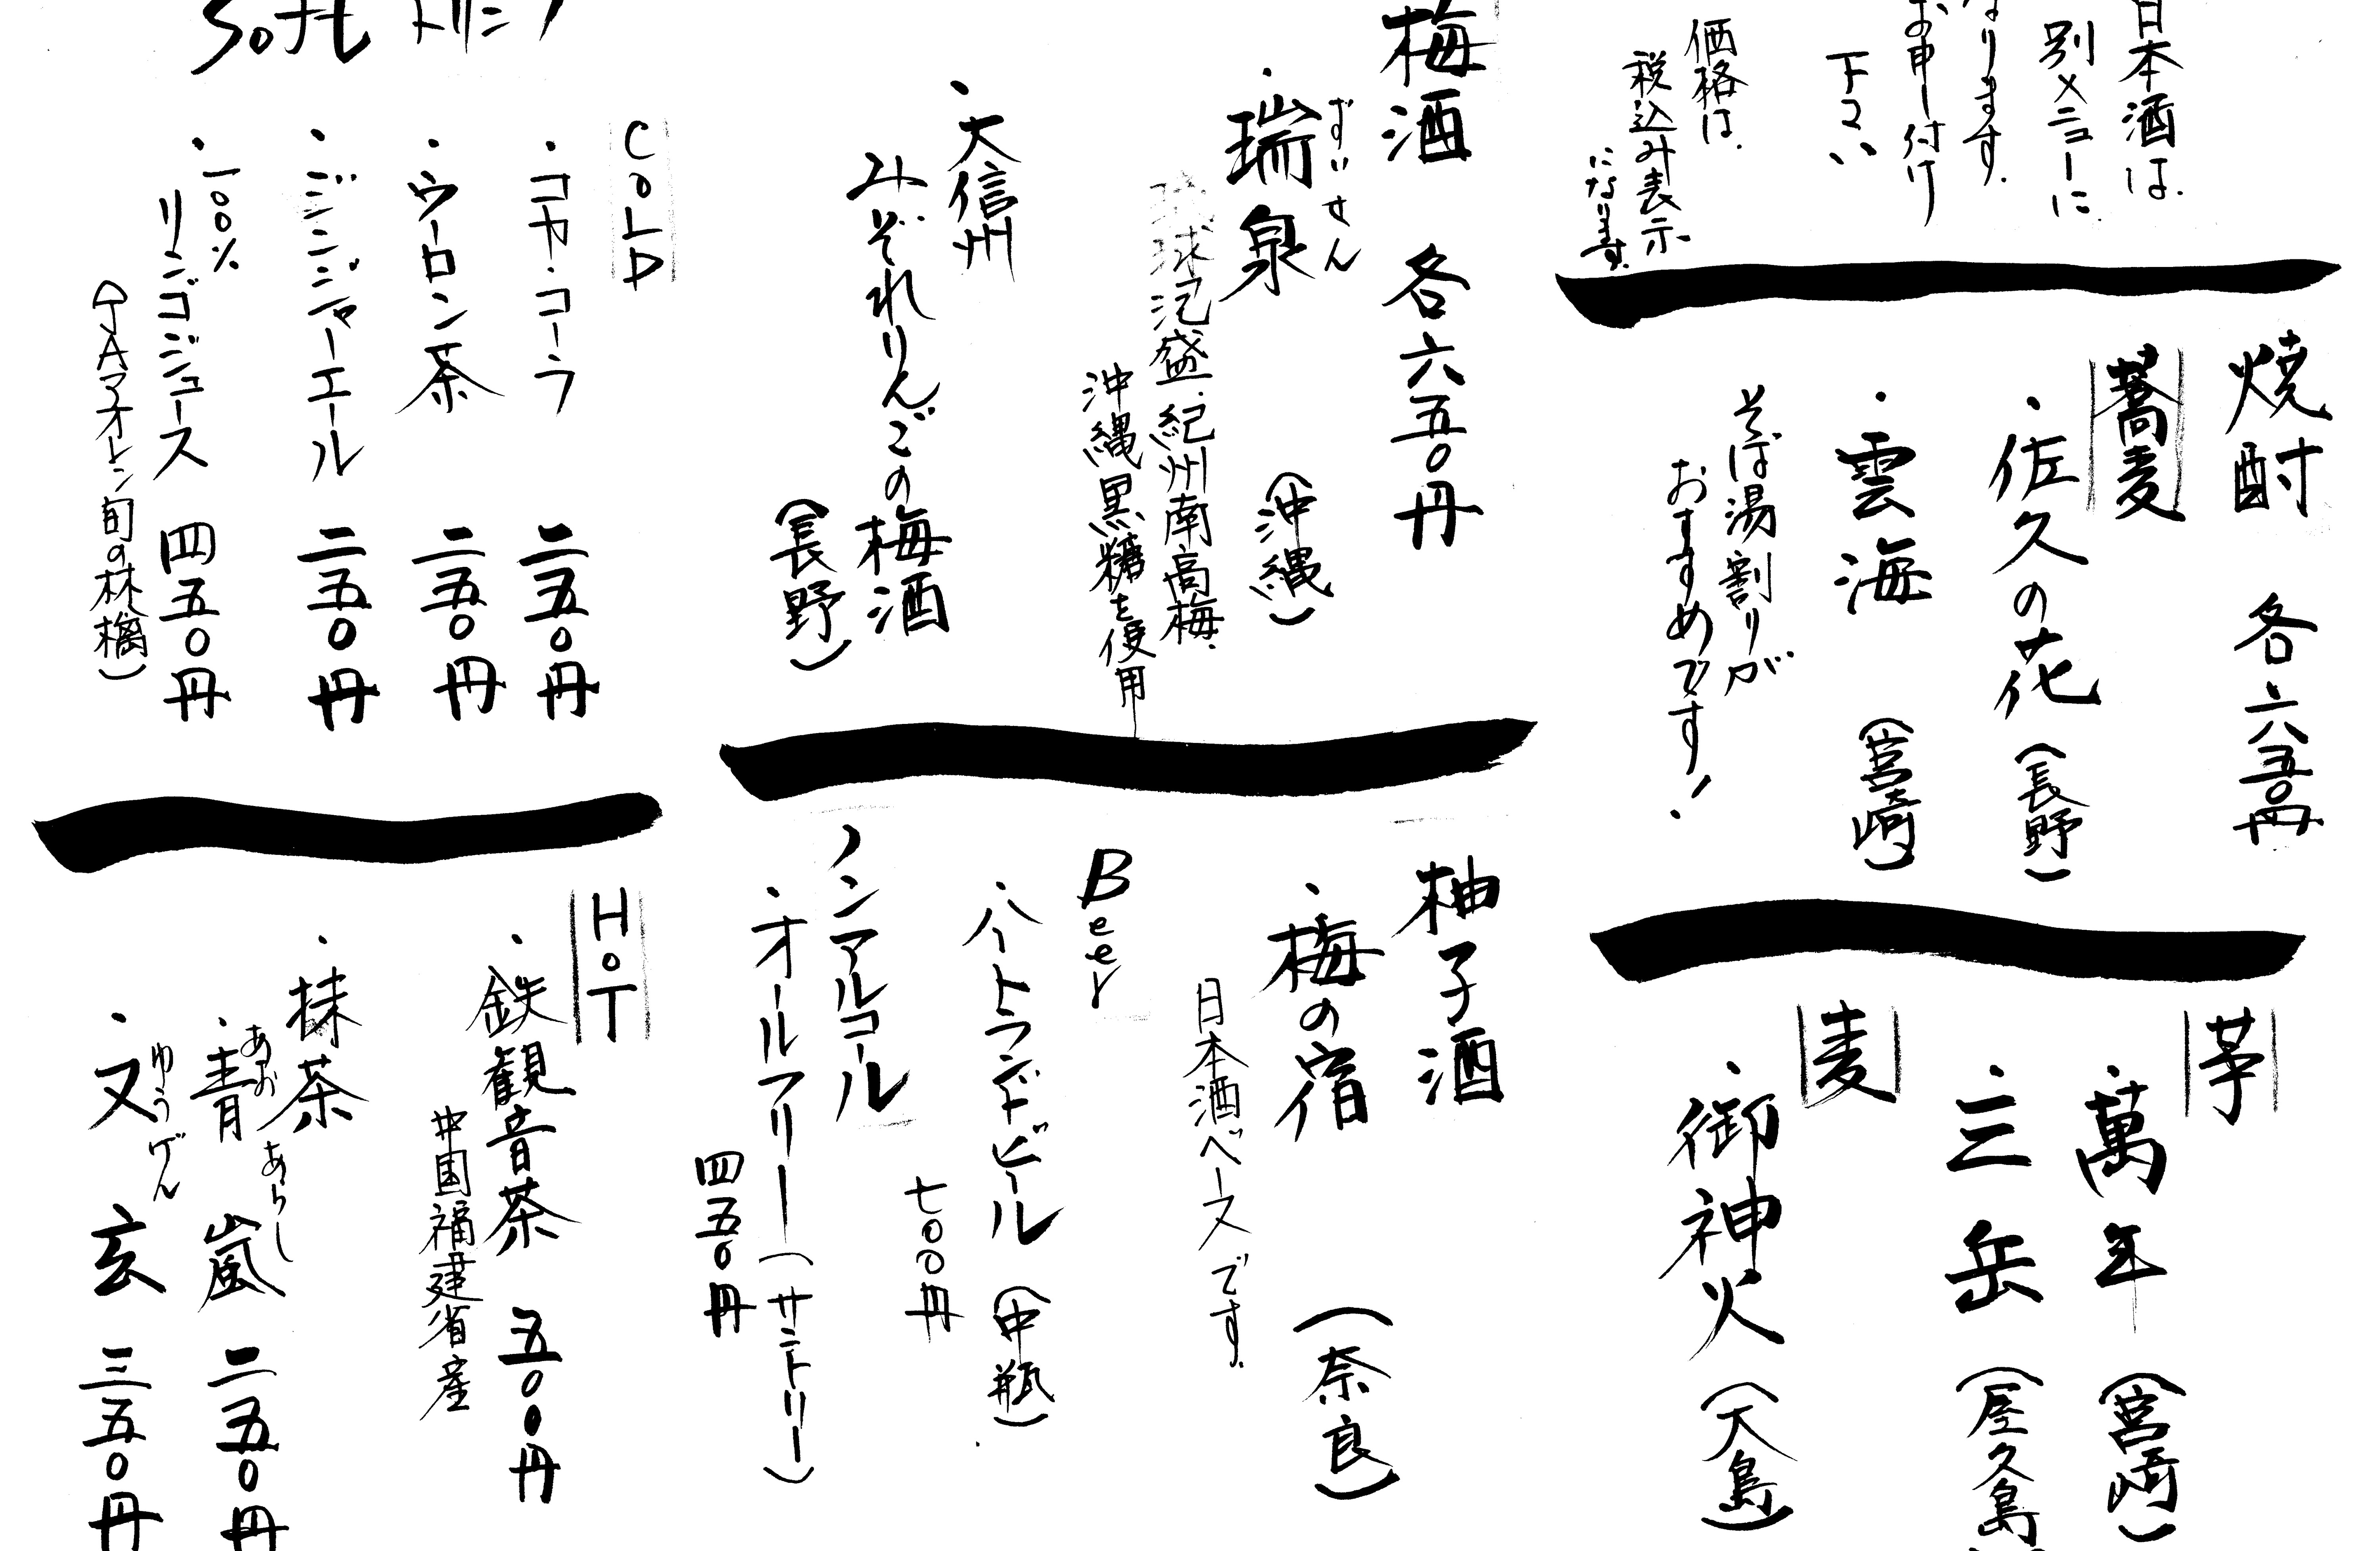 日本酒は、
別メニューに
なります。
お申し付け
下さい
価格は、
税込み表示
になります。
焼酎 各六五〇円
蕎麦
・佐久の花（長野）
・雲海（宮崎）
そば湯割りが
おすすめです！
芋
・萬年（宮崎）
・三岳（屋久島
麦
・御神火（大島）
梅酒 各六五〇円
ずいせん
・瑞泉（沖縄）
琉球泡盛、紀州南高梅、
沖縄黒糖を使用
・大信州
みぞれりんごの梅酒
（長野）
柚子酒
・梅の宿（奈良）
日本酒ベースです。
Beer
・ハートランドビール（中瓶）
七〇〇円
ノンアルコール
・オールフリー（サントリー）
四五〇円
Soft ドリンク
COLD
・コカ・コーラ 二五〇円
・ウーロン茶 二五〇円
・ジンジャーエール 二五〇円
・一〇〇％
リンゴジュース 四五〇円
（JAアオレン旬の林檎）
HOT
・鉄観音茶 五〇〇円
中国福建省産
・抹茶
あお あらし
・青嵐 二五〇円
ゆうげん
・又玄 三五〇円